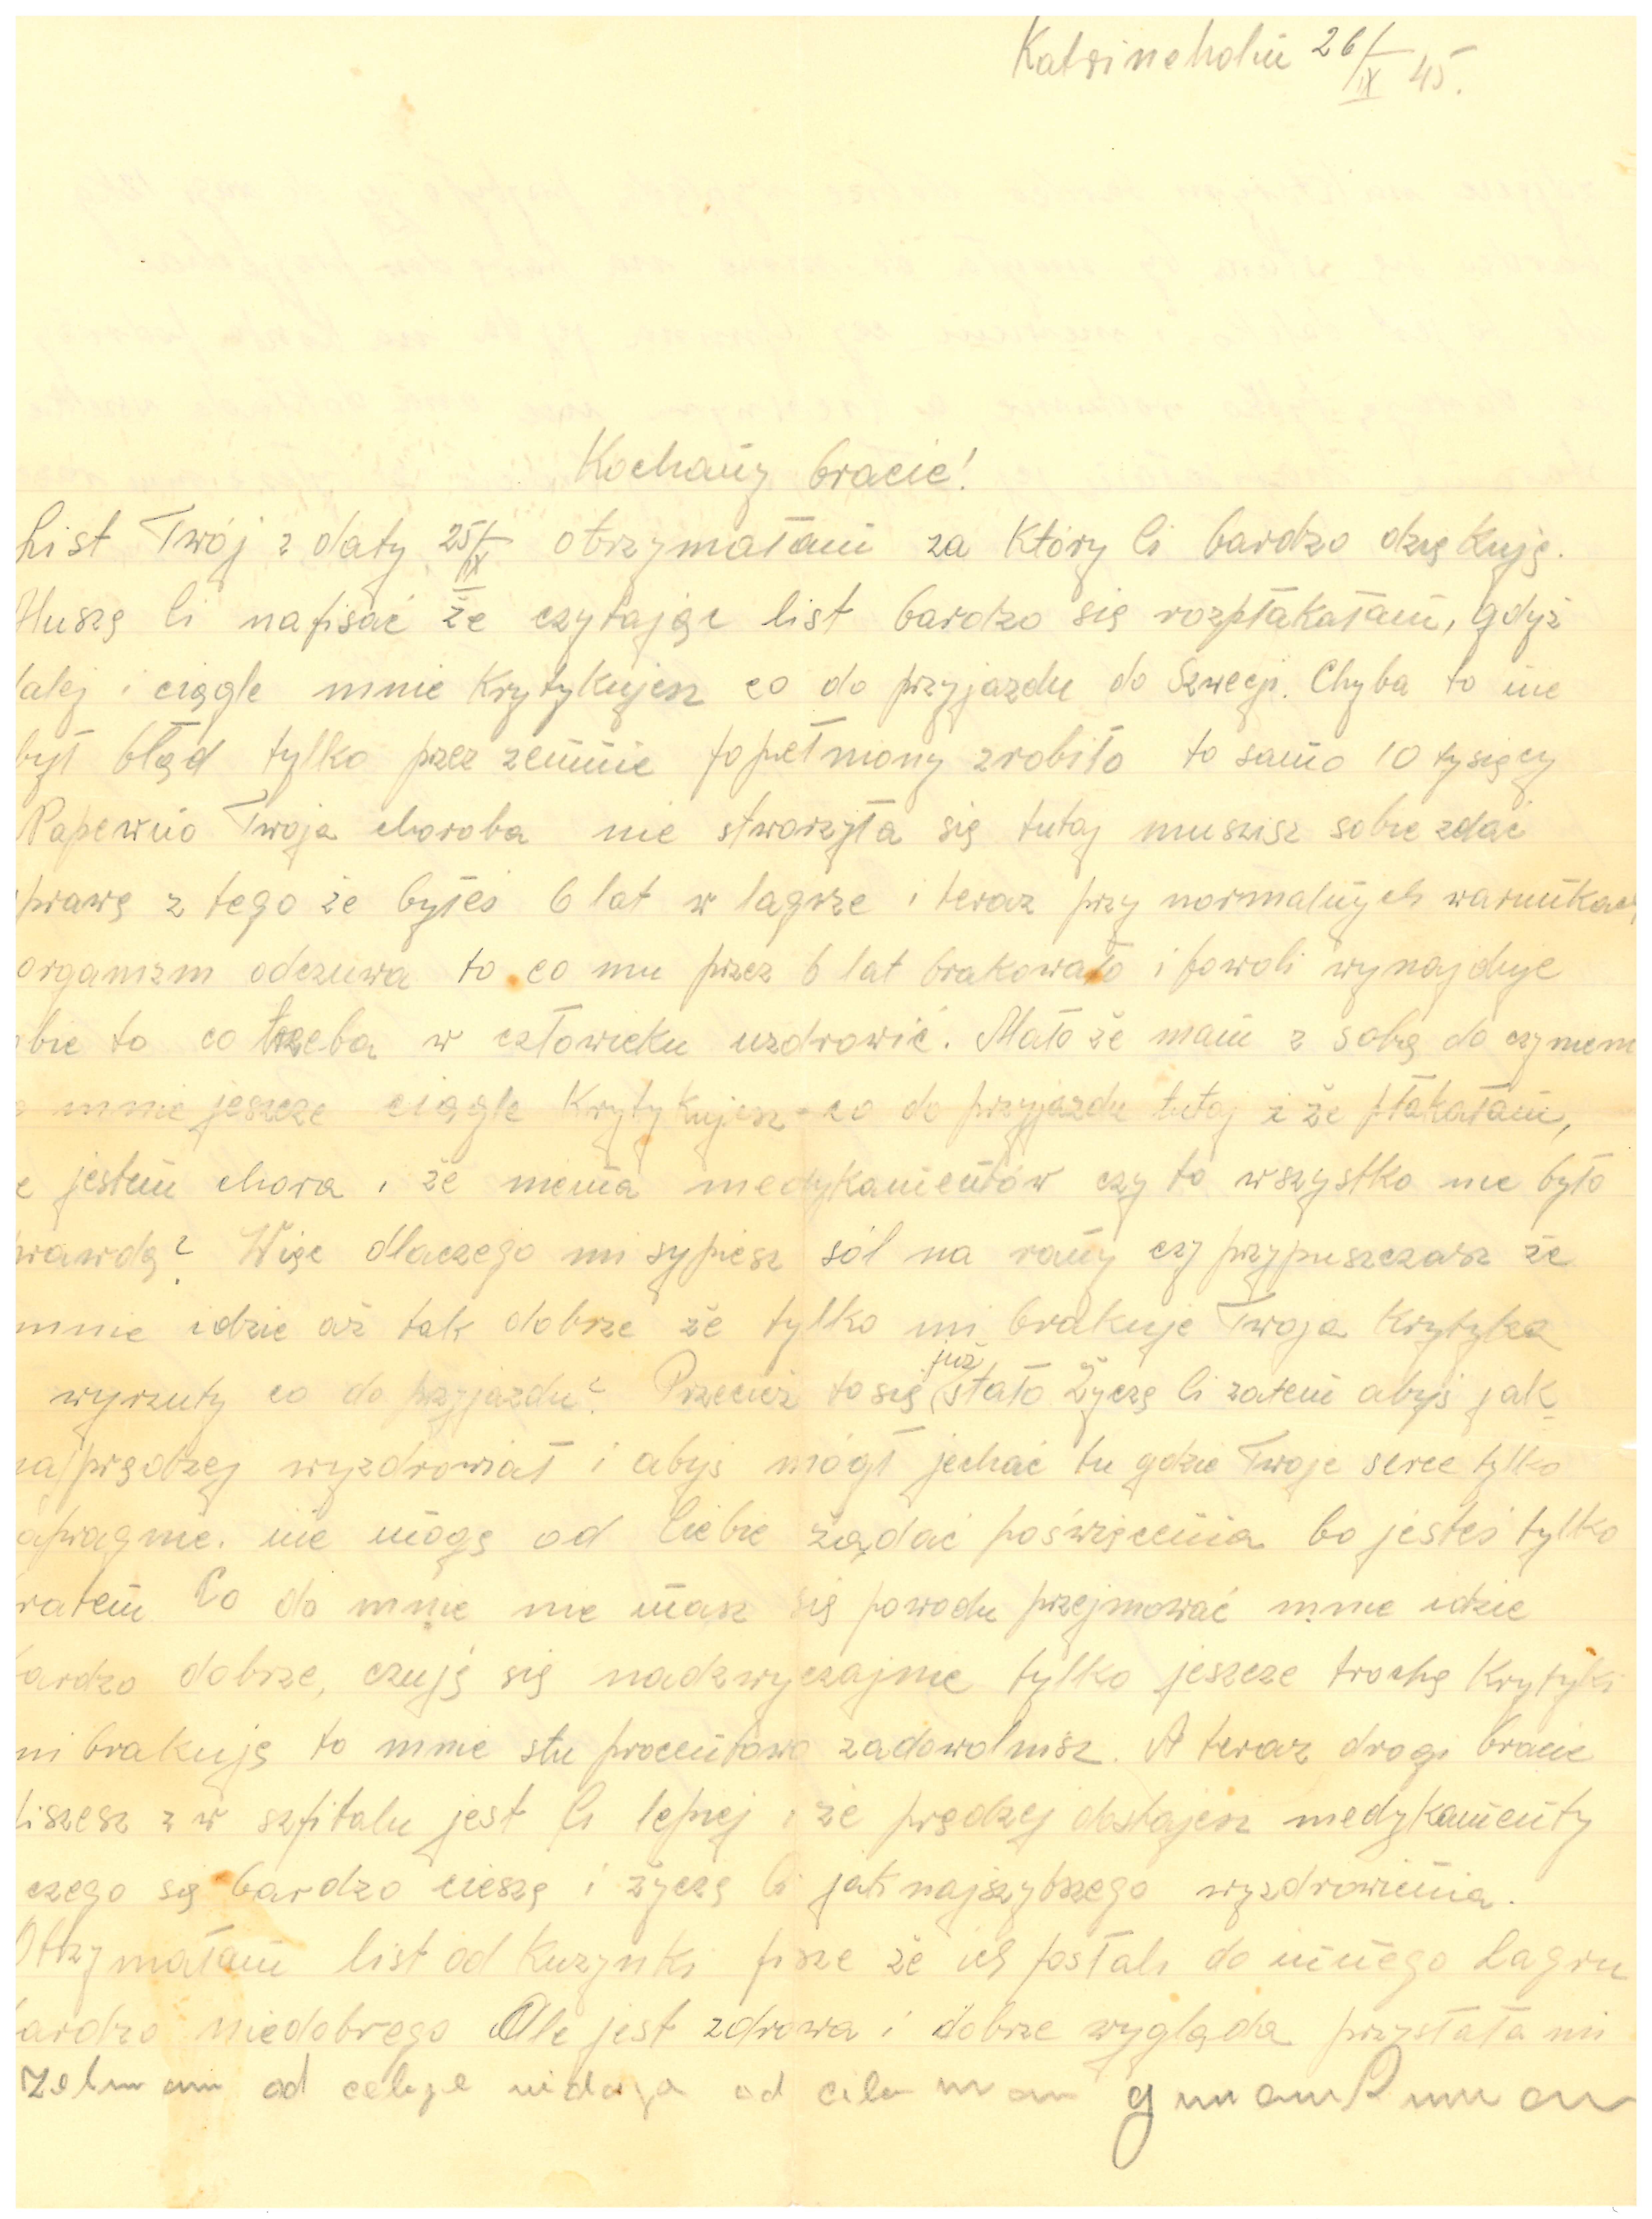 Katrineholm 26/IX 45.
Kochany bracie!
List Twój z daty 25/IX otrzymałam za który Ci bardzo dziękuję.
Muszę Ci napisać że czytając list bardzo się rozpłakałam, gdyż
dalej i ciągle mnie krytykujesz co do przyjazdu do Szwecji. Chyba to nie
był błąd tylko przez zemnie popełniony zrobiło to samo 10 tysięcy
Napewno Twoja choroba nie stworzyła się tutaj musisz sobie zdać
sprawę z tego że byłeś 6 lat w lagrze i teraz przy normalnych warunkach
organizm odczuwa to co mu przez 6 lat brakowało i powoli wynajduje
obie to co trzeba w człowieku uzdrowić. Mało że mam z sobą do czynienia
mnie jeszcze ciągle krytykujesz co do przyjazdu tutaj i że płakałam,
e jestem chora i że niema medykamentów czy to wszystko nie było
prawdą? Więc dlaczego mi sypiesz sól na rany czy przypuszczasz że
mnie idzie aż tak dobrze że tylko mi brakuje Twoja krytyka
wyrzuty co do przyjazdu? Przecież to się już stało Życzę Ci zatem abyś jak
najprędzej wyzdrowiał i abyś mógł jechać tu gdzie Twoje serce tylko
zapragnie. nie mogę od Ciebie żądać poświęcenia bo jesteś tylko
bratem Co do mnie nie masz się powodu przejmować mnie idzie
bardzo dobrze, czuję się nadzwyczajnie tylko jeszcze trochę krytyki
mi brakuję to mnie stu procentowo zadowolnisz. A teraz drogi bracie
piszesz z w szpitalu jest Ci lepiej i że prędzej dostajesz medykamenty
czego się bardzo cieszę i życzę Ci jaknajszybszego wyzdrowienia.
Otrzymałam list od Kuzynki pisze że ich posłali do innego Lagru
bardzo niedobrego Ale jest zdrowa i dobrze wygląda przysłała mi
od od